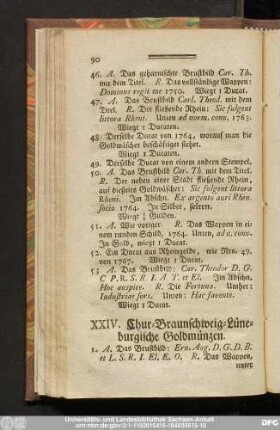 90
46. A. Das geharnischte Brustbild Car. Th.
mit dem Titel. R. Das vollständige Wappen:
Dominus regit me 1750. Wiegt 1 Ducat.
47. A. Das Brustbild Carl. Theod. mit dem
Titel. R. Der fliesende Rhein: Sic fulgent
littora Rheni. Unten ad norm. conv. 1763.
Wiegt 1 Ducaten.
48. Derselbe Ducat von 1764, worauf man die
Goldwäscher beschäftiget siehet.
Wiegt 1 Ducaten.
49. Derselbe Ducat von einem andern Stempel.
50. A. Das Brustbild Car. Th. mit dem Titel.
R. Der neben einer Stadt fliesende Rhein,
auf diesseits Goldwäscher: Sic fulgent littora
Rheni. Im Abschn. Ex argento auri Rhen.
socio 1764. In Silber, selten.
Wiegt ½ Gulden.
51. A. Wie voriger. R. Das Wappen in ei-
nem runden Schild, 1764. Unten, ad n. conv.
In Gold, wiegt 1 Ducat.
52. Ein Ducat aus Rheingolde, wie Nro. 49.
von 1767. Wiegt 1 Ducat.
53. A. Das Brustbild: Car. Theodor D. G.
C. P. R. S. R. I. A. T. et El. Im Abschn.
Hoc auspice. R. Die Fortuna. Umher:
Industriae fors. Unten: Hac favente.
Wiegt 1 Ducat.
XXIV. Chur-Braunschweig-Lüne-
burgische Goldmünzen.
1. A. Das Brustbild: Ern. Aug. D. G. D. B.
et L. S. R. I. El. E. O. R. Das Wappen,
unter
Universitäts- und Landesbibliothek Sachsen-Anhalt
DFG